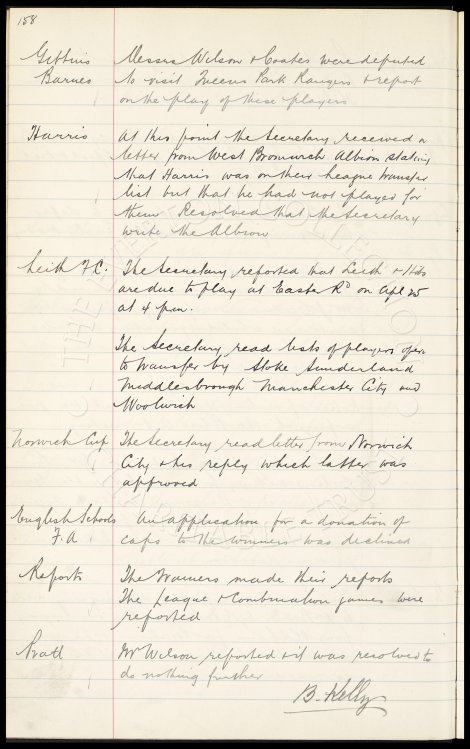 158
Gittins Messrs Wilson & Coates were deputed
Barnes to visit Queens Park Rangers & report
on the play of these players
Harris At this point the Secretary received a
letter from West Bromwich Albion stating
that Harris was on their League transfer
list but that he had not played for
them Resolved that the Secretary
write the Albion
Leith F.C. The Secretary reported that Leith & Hibs
are due to play at Easter Rd on Apl 25
at 4 p.m.
The Secretary read lists of players open
to transfer by Stoke Sunderland
Middlesbrough Manchester City and
Woolwich
Norwich Cup The Secretary read letter from Norwich
City & his reply which latter was
approved
English Schools An application for a donation of
F.A caps to the winners was declined
Reports The Trainers made their reports
The League & Combination games were
reported
Pratt Mr Wilson reported & it was resolved to
do nothing further
B. Kelly